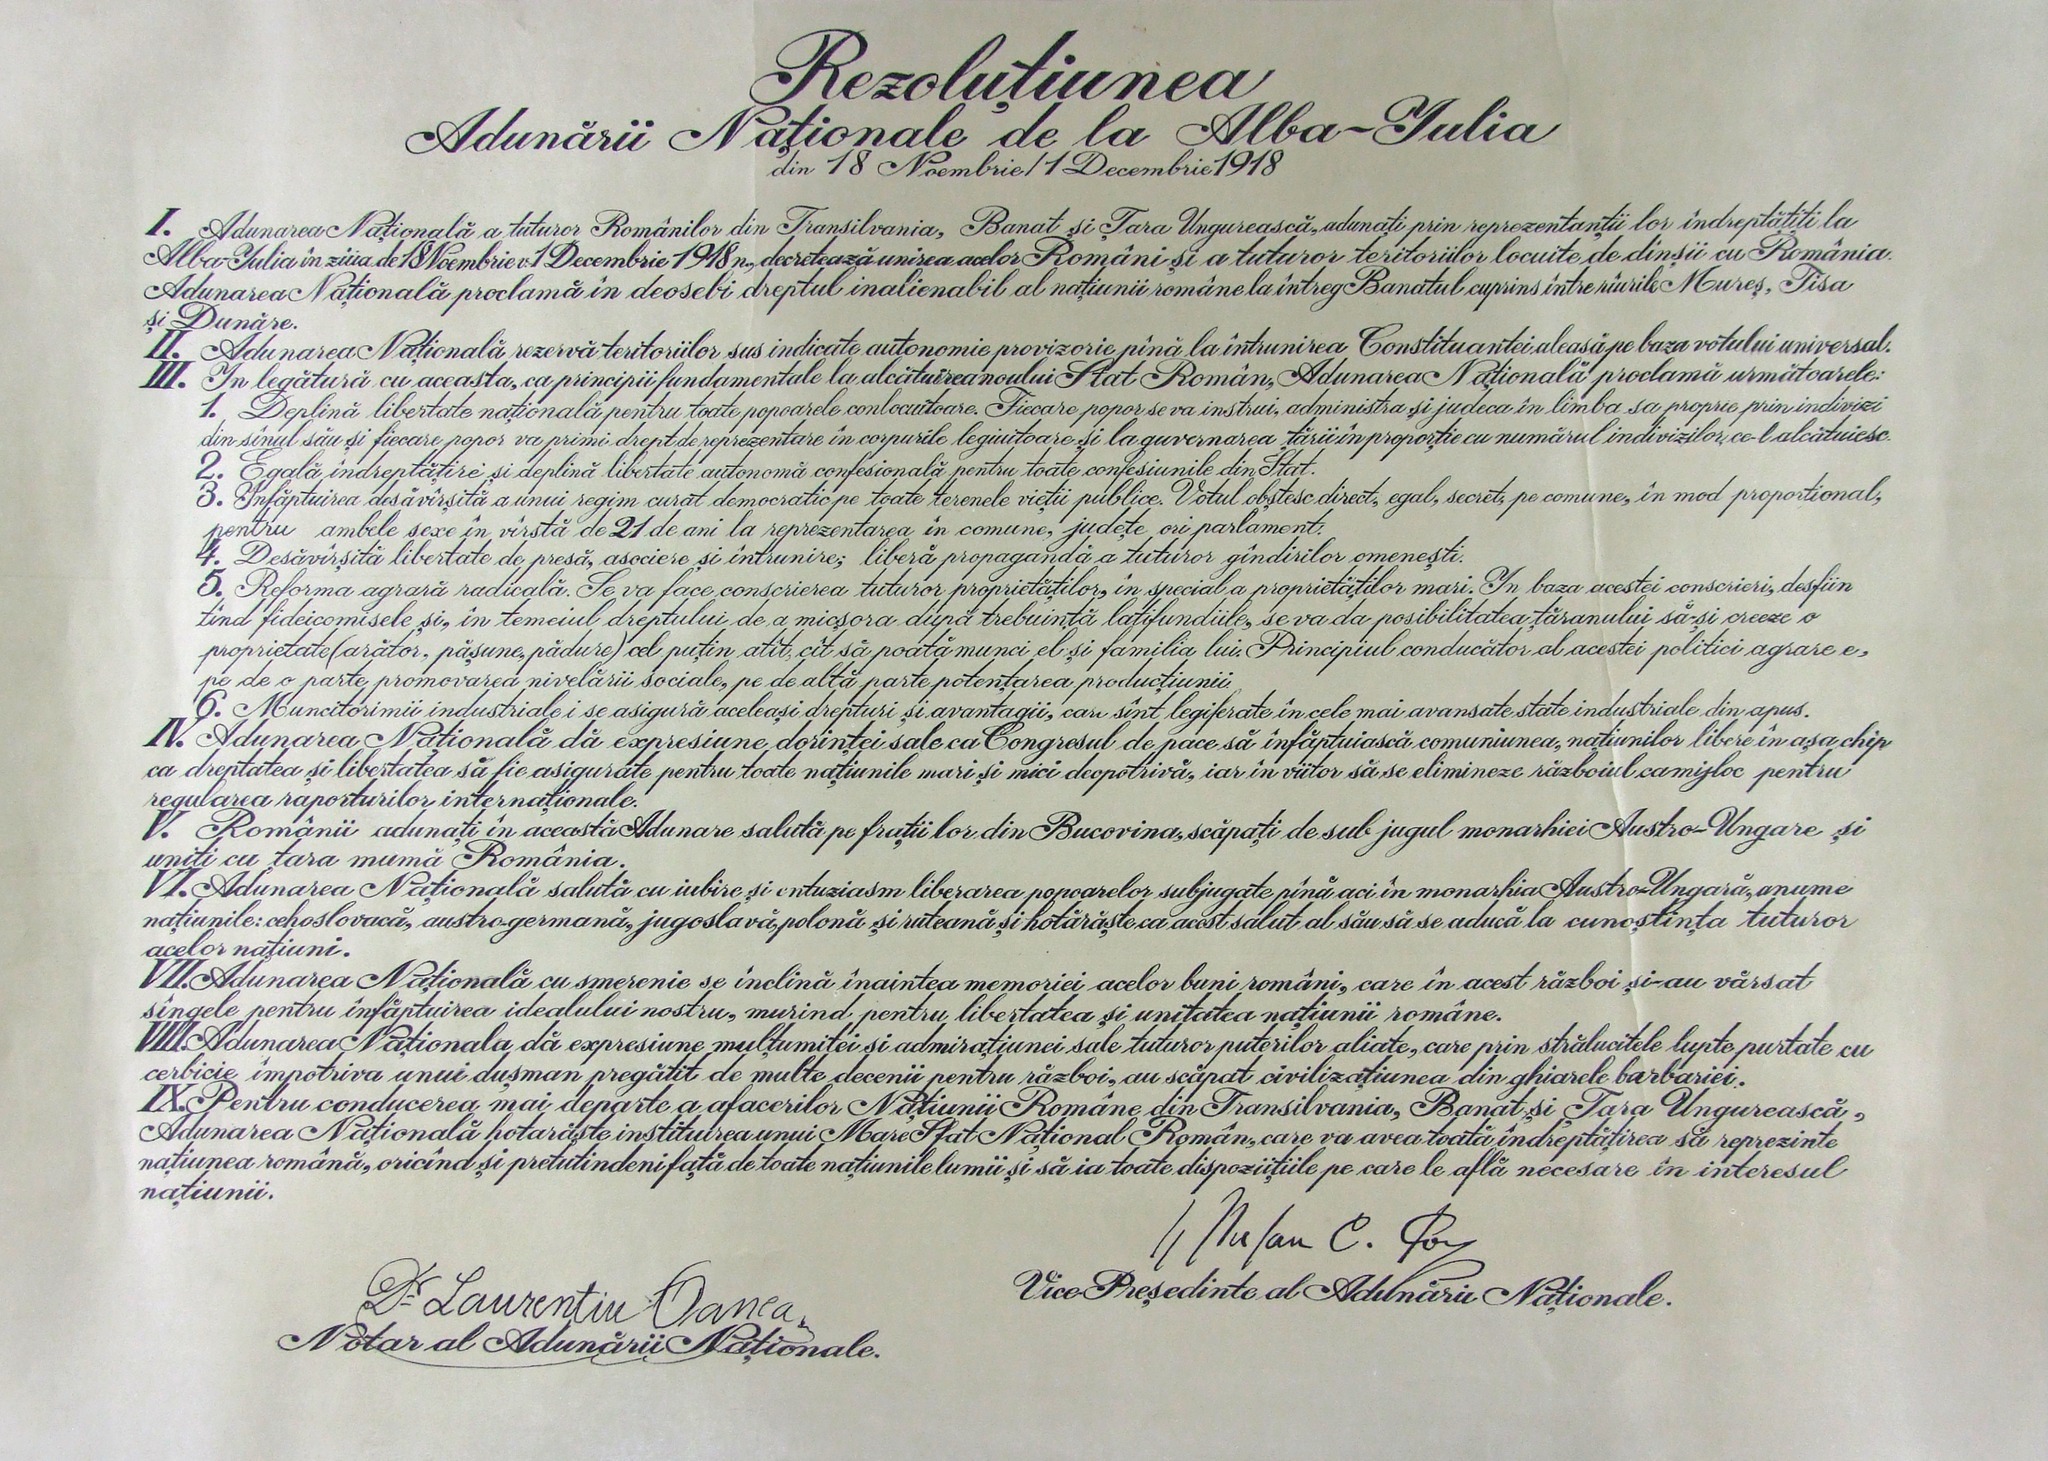 Rezoluțiunea
Adunării Naționale de la Alba-Iulia
din 18 Noembrie/1 Decembrie 1918
I. Adunarea Națională a tuturor Românilor din Transilvania, Banat și Țara Ungurească, adunați prin reprezentanții lor îndreptățiți la
Alba-Iulia în ziua de 18 Noembrie v. 1 Decembrie 1918 n., decretează unirea acelor Români și a tuturor teritoriilor locuite de dînșii cu România.
Adunarea Națională proclamă in deosebi dreptul inalienabil al națiunii române la întreg Banatul cuprins între rîurile Mureș, Tisa
și Dunăre.
II. Adunarea Națională rezervă teritoriilor sus indicate autonomie provizorie pînă la întrunirea Constituantei aleasă pe baza votului universal.
III. In legătură cu aceasta, ca principii fundamentale la alcătuirea noului Stat Român, Adunarea Națională proclamă următoarele:
1. Deplină libertate națională pentru toate popoarele conlocuitoare. Fiecare popor se va instrui, administra și judeca în limba sa proprie prin indivizi
din sînul său și fiecare popor va primi drept de reprezentare în corpurile legiuitoare și la guvernarea țării în proporție cu numărul indivizilor, ce-l alcătuiesc.
2. Egală îndreptățire și deplină libertate autonomă confesională pentru toate confesiunile din Stat.
3. Infăptuirea desăvîrșită a unui regim curat democratic pe toate terenele vieții publice. Votul obștesc direct, egal, secret, pe comune, în mod proporțional,
pentru ambele sexe în vîrstă de 21 de ani la reprezentarea în comune, județe ori parlament.
4. Desăvîrșită libertate de presă, asociere și întrunire; liberă propagandă a tuturor gîndirilor omenești.
5. Reforma agrară radicală. Se va face conscrierea tuturor proprietăților, în special a proprietăților mari. In baza acestei conscrieri, desfiin
țînd fideicomisele și, în temeiul dreptului de a micșora după trebuință latifundiile, se va da posibilitatea țăranului să-și creeze o
proprietate (arător, pășune, pădure) cel puțin atît, cît să poată munci el și familia lui. Principiul conducător al acestei politici agrare e,
pe de o parte promovarea nivelării sociale, pe de altă parte potențarea producțiunii.
6. Muncitorimii industriale i se asigură aceleași drepturi și avantagii, cari sînt legiferate în cele mai avansate state industriale din apus.
IV. Adunarea Națională dă expresiune dorinței sale ca Congresul de pace să înfăptuiască comuniunea, națiunilor libere în așa chip
ca dreptatea și libertatea să fie asigurate pentru toate națiunile mari și mici deopotrivă, iar în viitor să se elimineze războiul ca mijloc pentru
regularea raporturilor internaționale.
V. Românii adunați în această Adunare salută pe frații lor din Bucovina, scăpați de sub jugul monarhiei Austro-Ungare și
uniți cu țara mumă România.
VI. Adunarea Națională salută cu iubire și entuziasm liberarea popoarelor subjugate pînă aci în monarhia Austro-Ungară, anume
națiunile: cehoslovacă, austro-germană, jugoslavă, polonă și ruteană și hotărăște ca acest salut al său să se aducă la cunoștința tuturor
acelor națiuni.
VII. Adunarea Națională cu smerenie se înclină înaintea memoriei acelor buni români, care în acest război și-au vărsat
sîngele pentru înfăptuirea idealului nostru, murind pentru libertatea și unitatea națiunii române.
VIII. Adunarea Naționala dă expresiune mulțumitei și admirațiunei sale tuturor puterilor aliate, care prin strălucitele lupte purtate cu
cerbicie împotriva unui dușman pregătit de multe decenii pentru război, au scăpat civilizațiunea din ghiarele barbariei.
IX. Pentru conducerea mai departe a afacerilor Națiunii Române din Transilvania, Banat și Țara Ungurească,
Adunarea Națională hotarăște instituirea unui Mare Sfat Național Român, care va avea toată îndreptățirea să reprezinte
națiunea română, oricînd și pretutindeni față de toate națiunile lumii și să ia toate dispozițiile pe care le află necesare în interesul
națiunii.
Ștefan C. Pop
Vice-Președinte al Adunării Naționale.
Dr Laurențiu Oanea
Notar al Adunării Naționale.